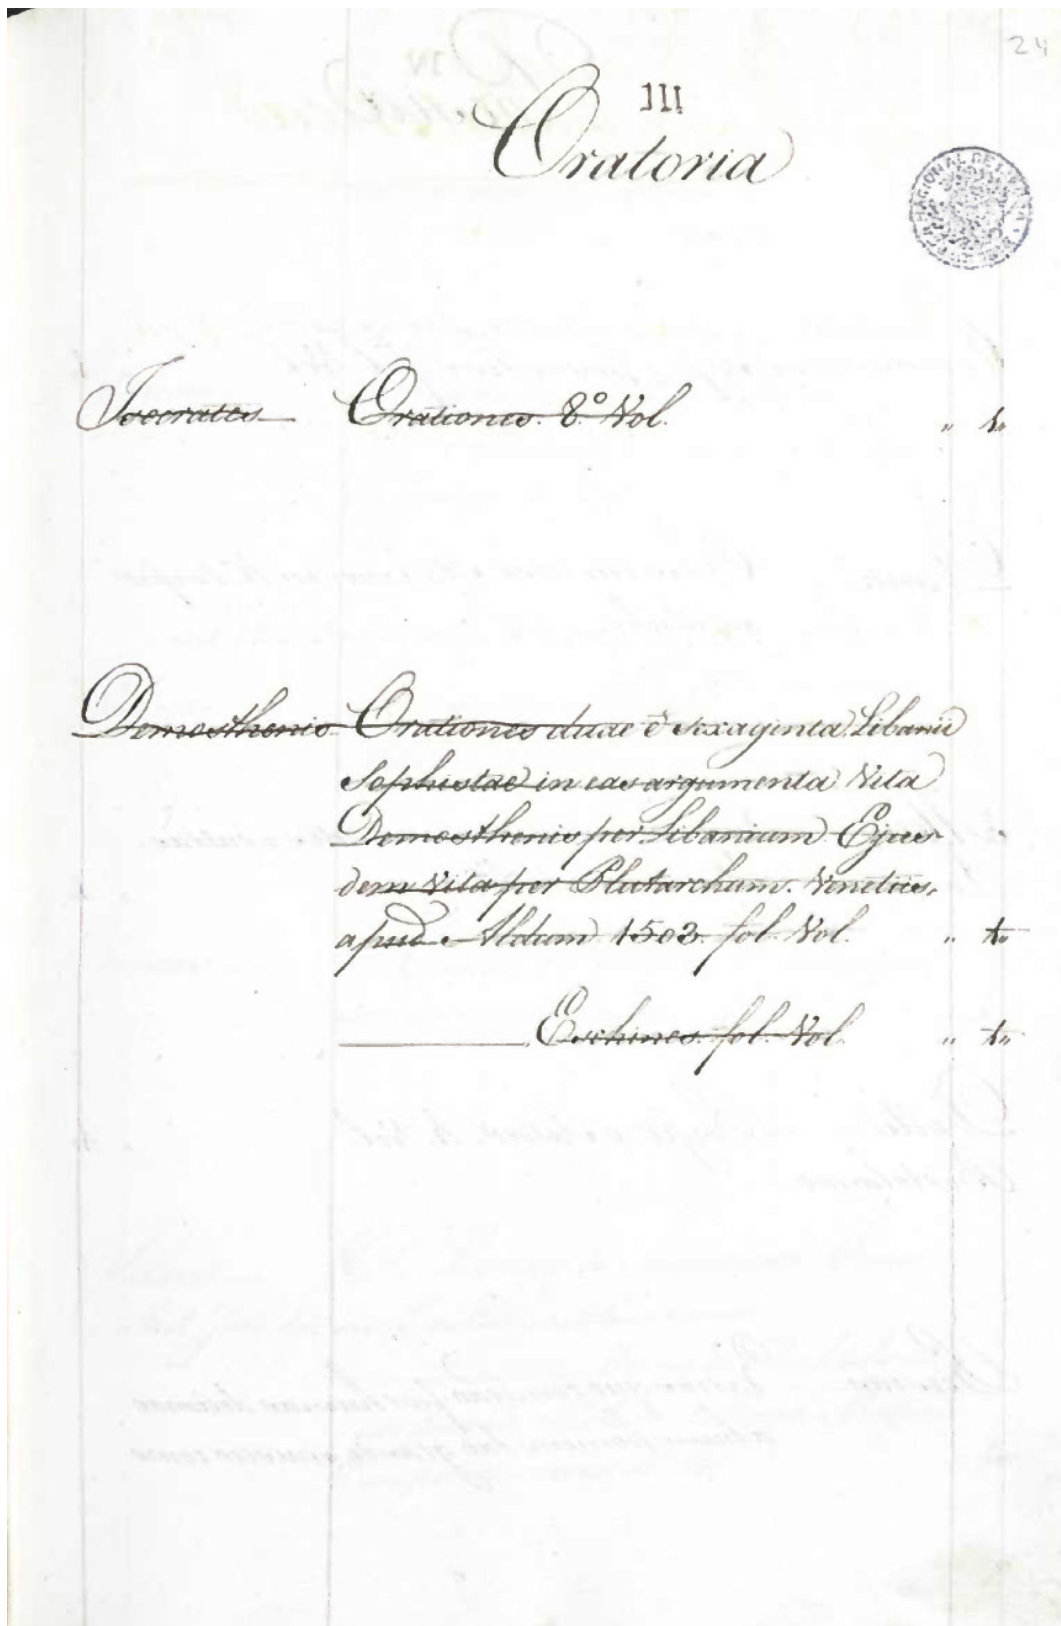 24
III
Oratoria
Isocrates Orationes. 8.º Vol. " 1"
Demosthenis Orationes duae è sexaginta. Libanii
Sophistae in eas argumenta Vita
Demosthenis per Libanium Ejus-
dem Vita per Plutarchum. Venetiis,
apud Aldum 1503. fol. Vol. " 1"
Eschines. fol. Vol. " 1"